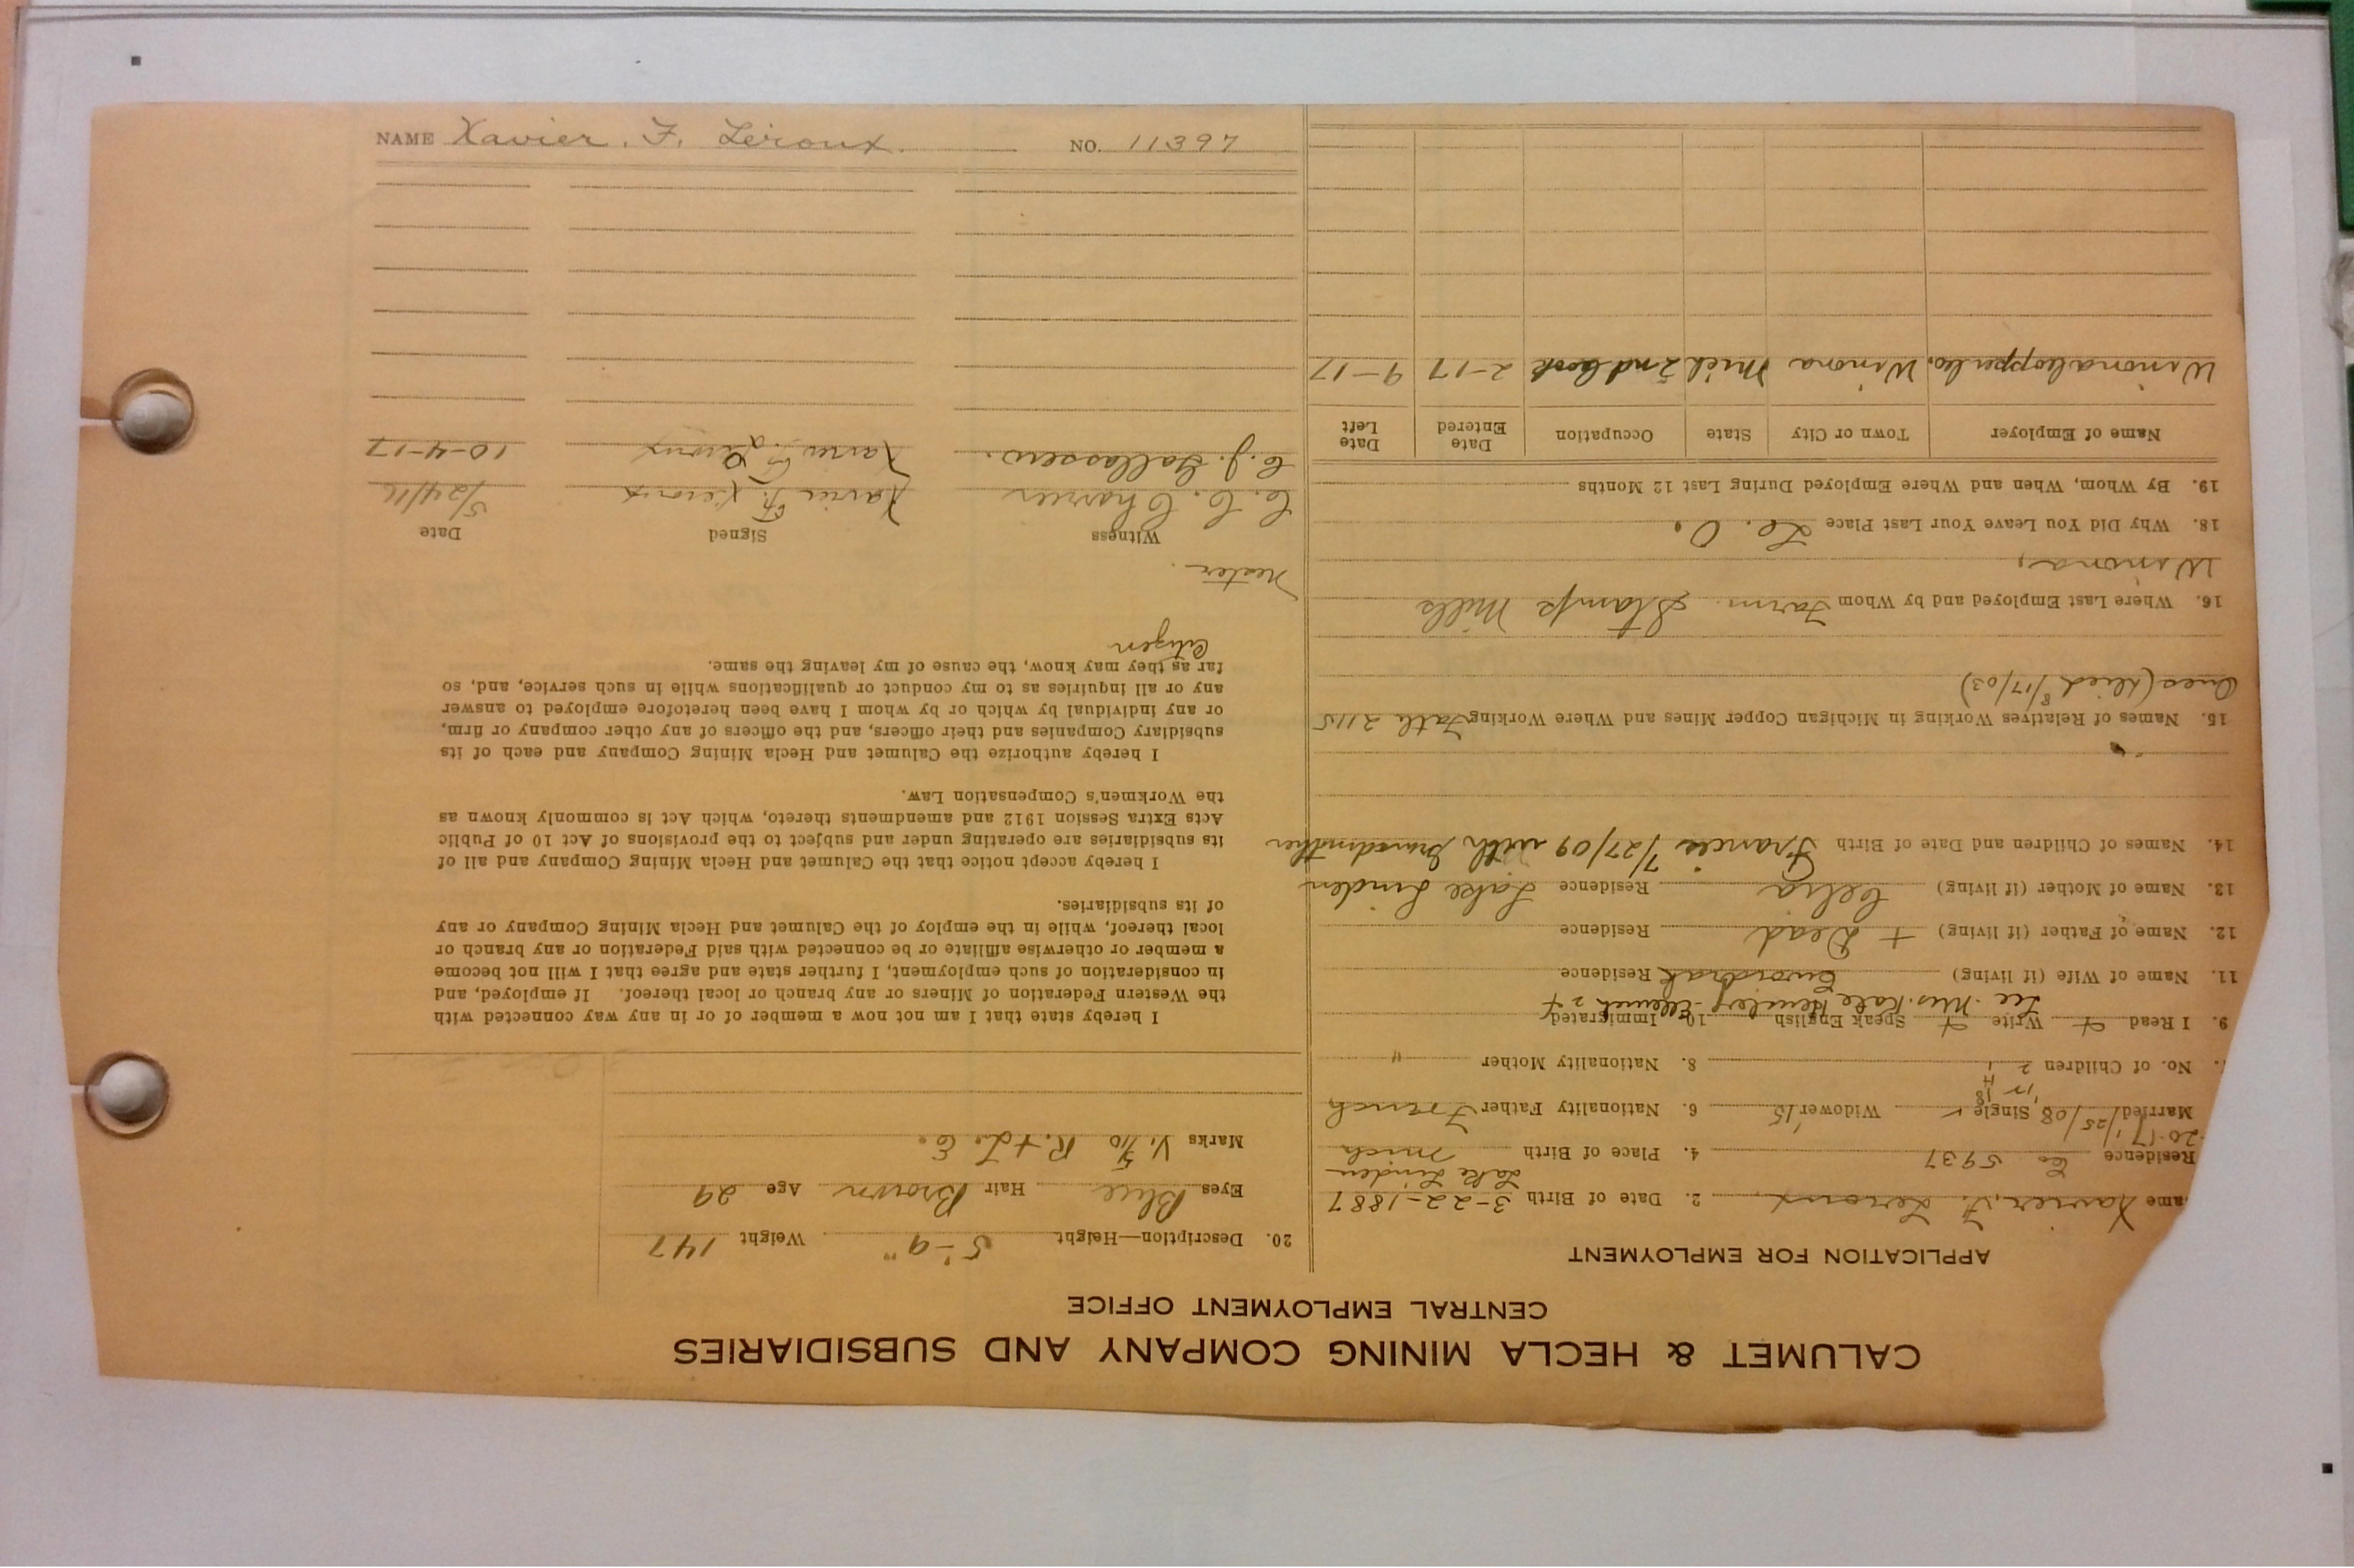 CALUMET & HECLA MINING COMPANY AND SUBSIDIARIES
CENTRAL EMPLOYMENT OFFICE
APPLICATION FOR EMPLOYMENT
ame Xavier. F. Leroux 2. Date of Birth 3-22-1887
Lake Linden
Residence Co 5937 4. Place of Birth Mich
20-17
Married 1/25/08 Single Widower '15 6. Nationality Father French
No. of Children 2 8. Nationality Mother "
9. I Read + Write + Speak English 10. Immigrated
See Mrs. Kate
11. Name of Wife (if living) Residence
12. Name of Father (if living) + Dead Residence
13. Name of Mother (if living) Celia Residence Lake Linden
14. Names of Children and Date of Birth Frances 7/27/09 with Grandmother
15. Names of Relatives Working in Michigan Copper Mines and Where Working Fath 2115
(died 8/17/03)
16. Where Last Employed and by Whom Farm. Stamp Mills
Winona,
18. Why Did You Leave Your Last Place Le. O.
19. By Whom, When and Where Employed During Last 12 Months
Name of Employer Town or City State Occupation Date Entered Date Left
Winona Copper Co. Winona Mich 2nd Cook 2-17 9-17
20. Description—Height 5'-9" Weight 147
Eyes Blue Hair Brown Age 29
Marks V. 5/10 R. + L. E.
I hereby state that I am not now a member of or in any way connected with
the Western Federation of Miners or any branch or local thereof. If employed, and
in consideration of such employment, I further state and agree that I will not become
a member or otherwise affiliate or be connected with said Federation or any branch or
local thereof, while in the employ of the Calumet and Hecla Mining Company or any
of its subsidiaries.
I hereby accept notice that the Calumet and Hecla Mining Company and all of
its subsidiaries are operating under and subject to the provisions of Act 10 of Public
Acts Extra Session 1912 and amendments thereto, which Act is commonly known as
the Workmen's Compensation Law.
I hereby authorize the Calumet and Hecla Mining Company and each of its
subsidiary Companies and their officers, and the officers of any other company or firm,
or any individual by which or by whom I have been heretofore employed to answer
any or all inquiries as to my conduct or qualifications while in such service, and, so
far as they may know, the cause of my leaving the same.
Citizen
Witness Signed Date
C. C. Charier Xavier F. Leroux 5/24/16
C. J. Xavier F. Leroux 10-4-17
NAME Xavier. F. Leroux. NO. 11397